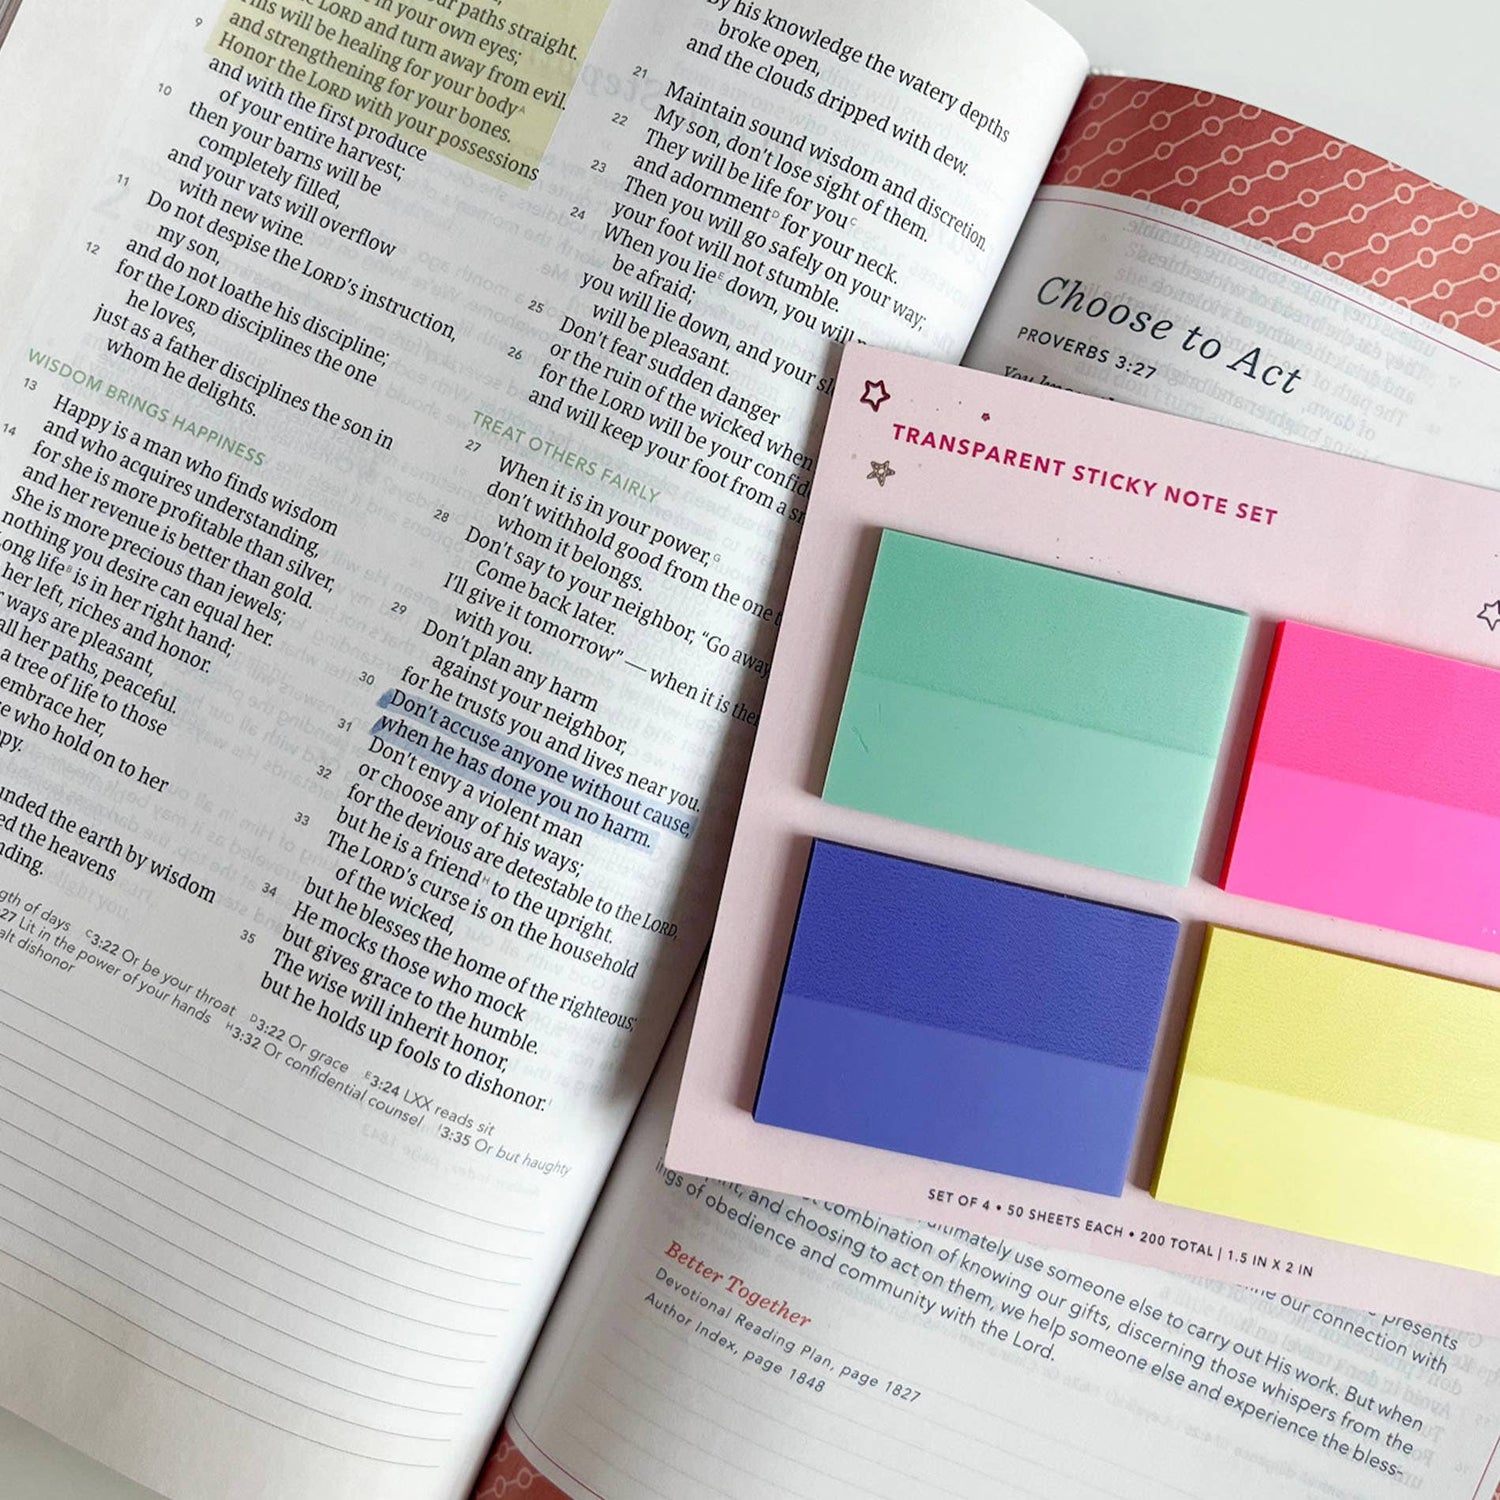 ur paths straight.
in your own eyes;
LORD and turn away from evil.
This will be healing for your bodyᴬ
and strengthening for your bones.
9 Honor the LORD with your possessions
and with the first produce
of your entire harvest;
10 then your barns will be
completely filled,
and your vats will overflow
with new wine.
11 Do not despise the LORD's instruction,
my son,
and do not loathe his discipline;
12 for the LORD disciplines the one
he loves,
just as a father disciplines the son in
whom he delights.
WISDOM BRINGS HAPPINESS
13 Happy is a man who finds wisdom
and who acquires understanding,
14 for she is more profitable than silver,
and her revenue is better than gold.
She is more precious than jewels;
nothing you desire can equal her.
Long lifeᴮ is in her right hand;
her left, riches and honor.
ways are pleasant,
all her paths, peaceful.
a tree of life to those
embrace her,
who hold on to her
unded the earth by wisdom
ed the heavens
nding.
By his knowledge the watery depths
broke open,
and the clouds dripped with dew.
21 Maintain sound wisdom and discretion.
My son, don't lose sight of them.
22 They will be life for youᶜ
and adornmentᴰ for your neck.
23 Then you will go safely on your way;
your foot will not stumble.
24 When you lieᴱ down, you will
be afraid;
you will lie down, and your
will be pleasant.
25 Don't fear sudden danger
or the ruin of the wicked when
26 for the LORD will be your confid
and will keep your foot from a
TREAT OTHERS FAIRLY
27 When it is in your power,ᴳ
don't withhold good from the one
whom it belongs.
28 Don't say to your neighbor, “Go away
Come back later.
I'll give it tomorrow” — when it is
with you.
29 Don't plan any harm
against your neighbor,
for he trusts you and lives near you.
30 Don't accuse anyone without cause,
when he has done you no harm.
31 Don't envy a violent man
or choose any of his ways;
32 for the devious are detestable to the LORD,
but he is a friendᴴ to the upright.
33 The LORD's curse is on the household
of the wicked,
but he blesses the home of the righteous;
34 He mocks those who mock
but gives grace to the humble.
35 The wise will inherit honor,
but he holds up fools to dishonor.ᴵ
gth of days ᶜ3:22 Or be your throat ᴰ3:22 Or grace ᴱ3:24 LXX reads sit
27 Lit in the power of your hands ᴴ3:32 Or confidential counsel ᴵ3:35 Or but haughty
alt dishonor
Choose to Act
PROVERBS 3:27
TRANSPARENT STICKY NOTE SET
SET OF 4 • 50 SHEETS EACH • 200 TOTAL | 1.5 IN X 2 IN
presents
our connection with
ultimately use someone else to carry out His work. But when
combination of knowing our gifts, discerning those whispers from the
and choosing to act on them, we help someone else and experience the bless-
ings of obedience and community with the Lord.
Better Together
Devotional Reading Plan, page 1827
Author Index, page 1848